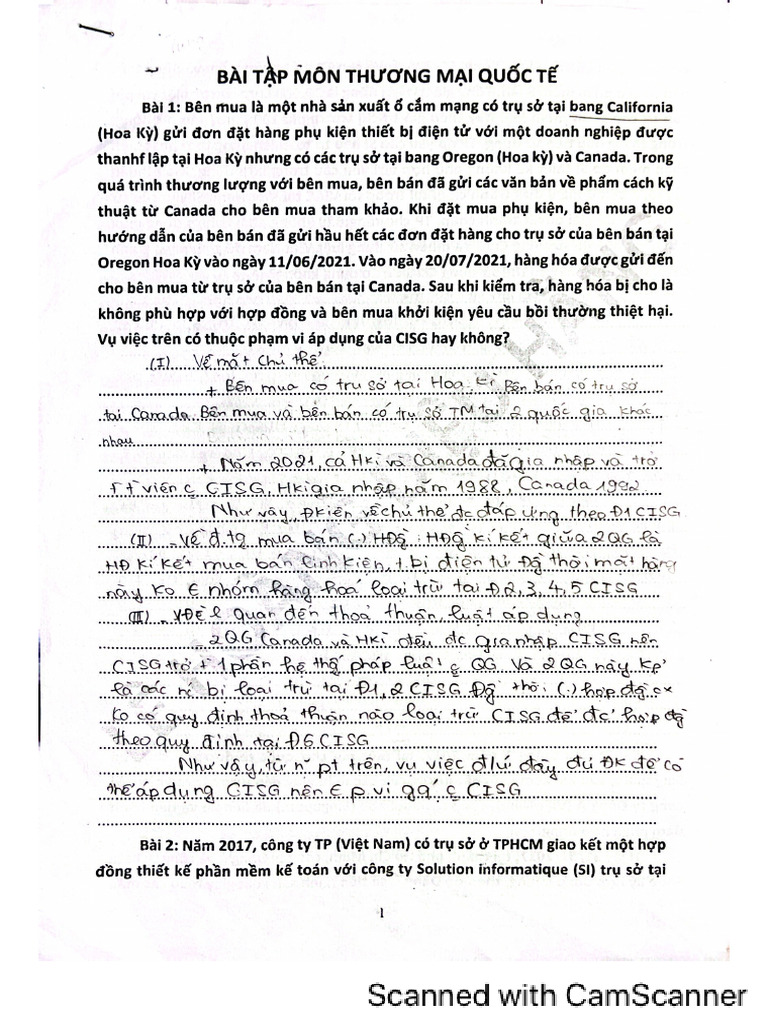 BÀI TẬP MÔN THƯƠNG MẠI QUỐC TẾ
Bài 1: Bên mua là một nhà sản xuất ổ cắm mạng có trụ sở tại bang California
(Hoa Kỳ) gửi đơn đặt hàng phụ kiện thiết bị điện tử với một doanh nghiệp được
thanhf lập tại Hoa Kỳ nhưng có các trụ sở tại bang Oregon (Hoa kỳ) và Canada. Trong
quá trình thương lượng với bên mua, bên bán đã gửi các văn bản về phẩm cách kỹ
thuật từ Canada cho bên mua tham khảo. Khi đặt mua phụ kiện, bên mua theo
hướng dẫn của bên bán đã gửi hầu hết các đơn đặt hàng cho trụ sở của bên bán tại
Oregon Hoa Kỳ vào ngày 11/06/2021. Vào ngày 20/07/2021, hàng hóa được gửi đến
cho bên mua từ trụ sở của bên bán tại Canada. Sau khi kiểm tra, hàng hóa bị cho là
không phù hợp với hợp đồng và bên mua khởi kiện yêu cầu bồi thường thiệt hại.
Vụ việc trên có thuộc phạm vi áp dụng của CISG hay không?
(I) Về mặt chủ thể
+ Bên mua có trụ sở tại Hoa Kì Bên bán có trụ sở
tại Canada. Bên mua và bên bán có trụ sở TM tại 2 quốc gia khác
nhau
+ Năm 2021, cả HKì và Canada đã gia nhập và trở
t+ viên c CISG, HKì gia nhập năm 1988, Canada 1992
Như vậy, đkiện về chủ thể đc đáp ứng theo Đ1 CISG
(II) - Về đ.tg mua bán (.) HĐg: HĐg kí kết giữa 2QG là
HĐ kí kết mua bán linh kiện, t.bị điện tử Đg thời mặt hàng
này ko ∈ nhóm hàng hoá loại trừ tại Đ 2, 3, 4, 5 CISG
(III) - VĐề l quan đến thoả thuận, luật áp dụng
- 2QG Canada và HKì đều đc gia nhập CISG nên
CISG trở t+ 1 phần hệ thg pháp luật c QG. Và 2QG này kp'
là các bị loại trừ tại Đ1, 2 CISG Đg thời (.) hợp đg
ko có quy định thoả thuận nào loại trừ CISG để đc hợp đg
theo quy định tại Đ6 CISG
Như vậy, từ n~ pt trên, vụ việc đ/ứ đầy đủ ĐK để có
thể áp dụng CISG nên ∈ p.vi c CISG
Bài 2: Năm 2017, công ty TP (Việt Nam) có trụ sở ở TPHCM giao kết một hợp
đồng thiết kế phần mềm kế toán với công ty Solution informatique (SI) trụ sở tại
1
Scanned with CamScanner